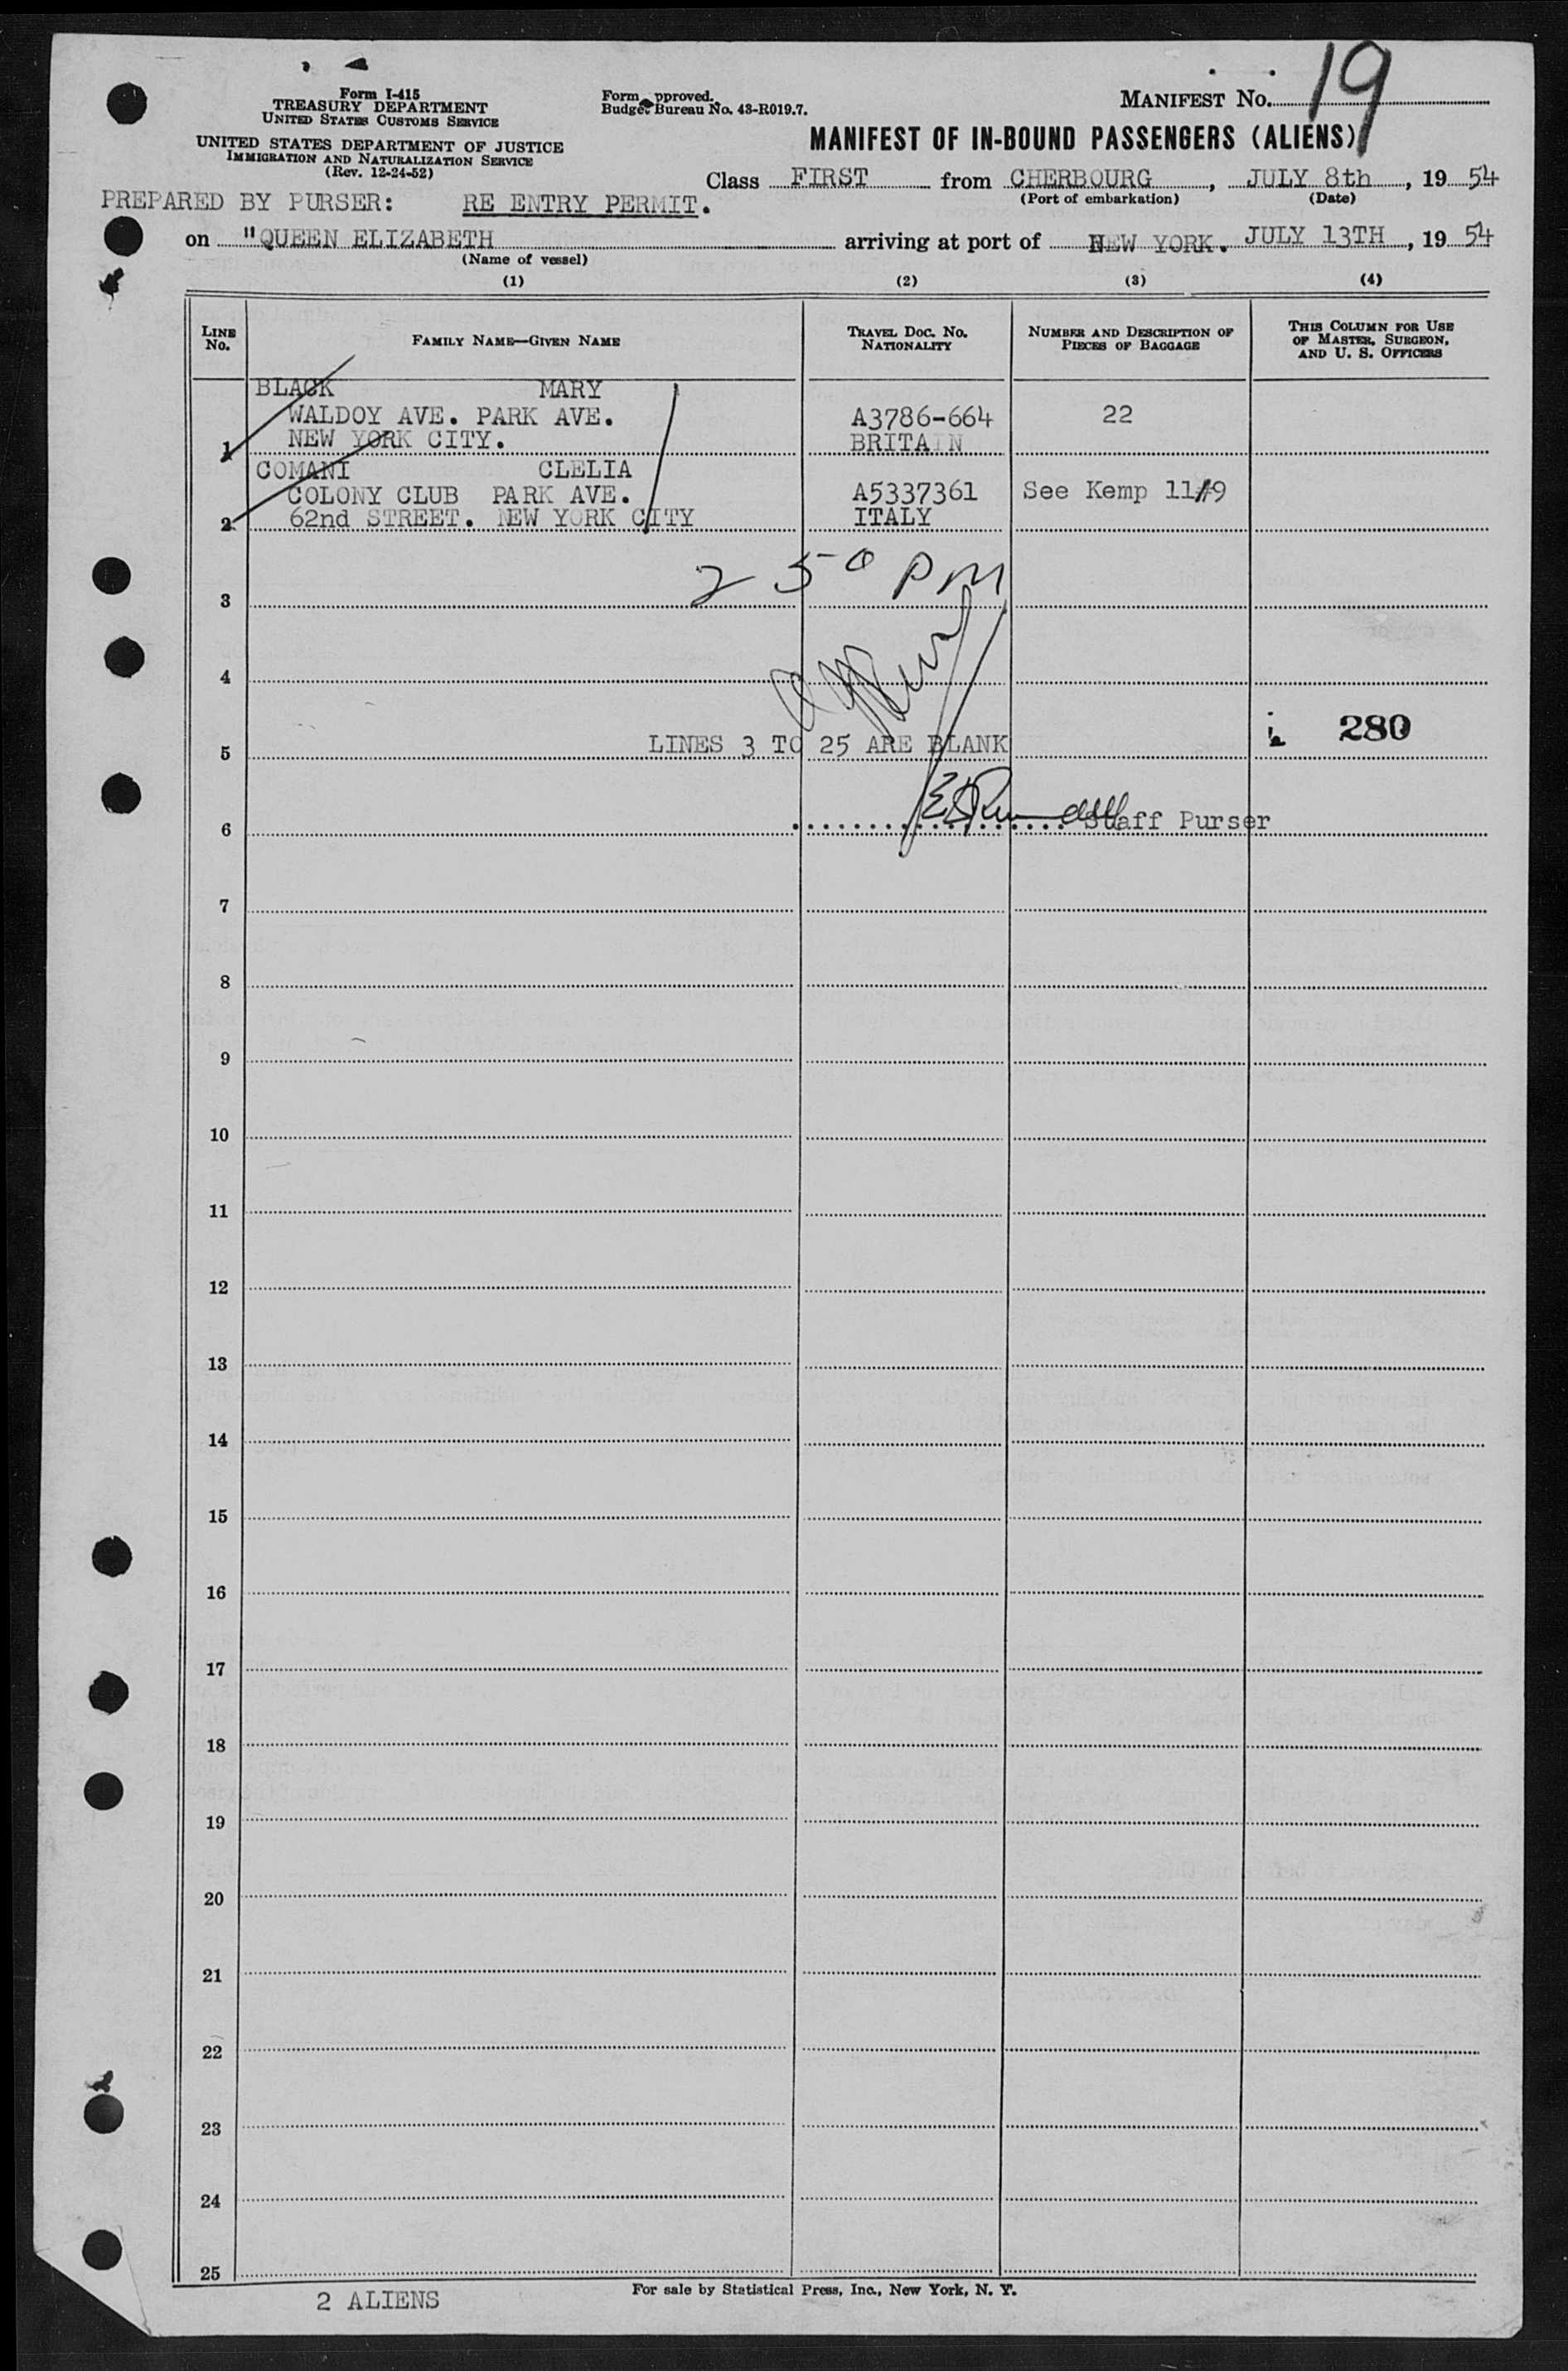 Form I-415
TREASURY DEPARTMENT
UNITED STATES CUSTOMS SERVICE
UNITED STATES DEPARTMENT OF JUSTICE
IMMIGRATION AND NATURALIZATION SERVICE
(Rev. 12-24-52)
Form pproved.
Budget Bureau No. 43-R019.7.
MANIFEST NO. 19
MANIFEST OF IN-BOUND PASSENGERS (ALIENS)
Class FIRST from CHERBOURG, JULY 8th, 19 54
(Port of embarkation) (Date)
PREPARED BY PURSER: RE ENTRY PERMIT.
on "QUEEN ELIZABETH arriving at port of NEW YORK. JULY 13TH, 19 54
(Name of vessel)
(1) (2) (3) (4)
LINE NO. FAMILY NAME—GIVEN NAME TRAVEL DOC. NO. NATIONALITY NUMBER AND DESCRIPTION OF PIECES OF BAGGAGE THIS COLUMN FOR USE OF MASTER, SURGEON, AND U. S. OFFICERS
BLACK MARY
WALDOY AVE. PARK AVE. A3786-664 22
1 NEW YORK CITY. BRITAIN
COMANI CLELIA
COLONY CLUB PARK AVE. A5337361 See Kemp 11/9
2 62nd STREET. NEW YORK CITY ITALY
2 50 PM
3
4
280
LINES 3 TO 25 ARE BLANK
5
6 Staff Purser
7
8
9
10
11
12
13
14
15
16
17
18
19
20
21
22
23
24
25
2 ALIENS
For sale by Statistical Press, Inc., New York, N. Y.